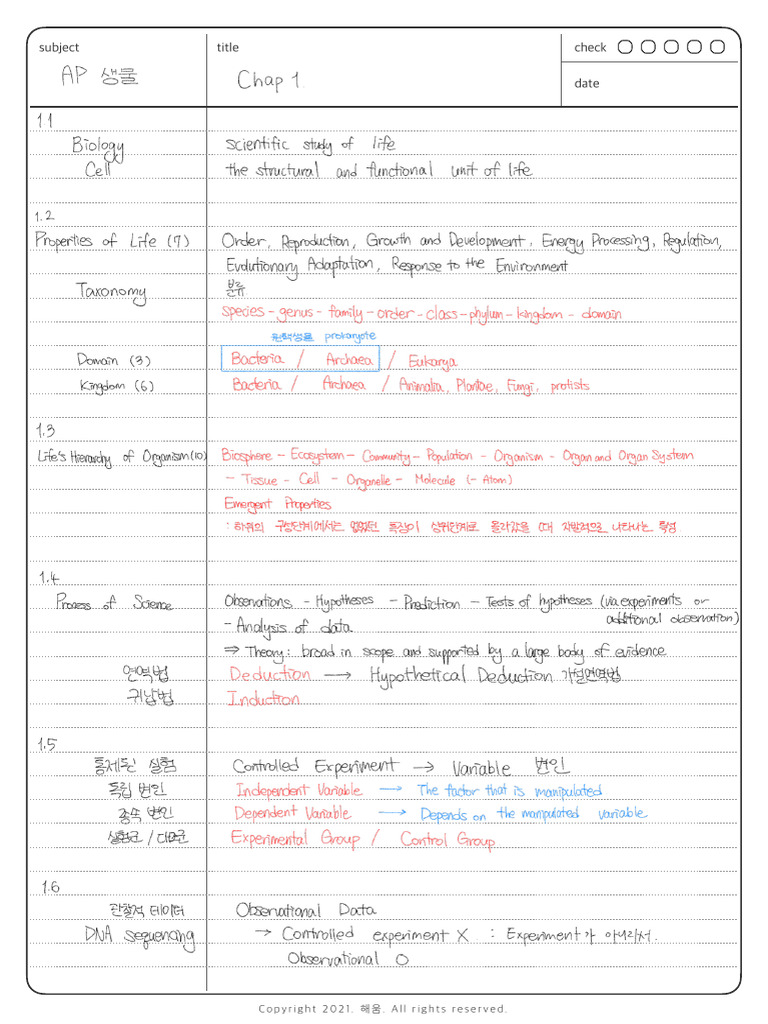 subject title check
AP 생물 Chap 1. date
1.1
Biology scientific study of life
Cell the structural and functional unit of life
1.2
Properties of Life (7) Order, Reproduction, Growth and Development, Energy Processing, Regulation,
Evolutionary Adaptation, Response to the Environment
Taxonomy 분류
Species - genus - family - order - class - phylum - kingdom - domain
원핵생물 prokaryote
Domain (3) Bacteria / Archaea / Eukarya
Kingdom (6) Bacteria / Archaea / Animalia, Plantae, Fungi, protists
1.3
Life's Hierarchy of Organism (10) Biosphere - Ecosystem - Community - Population - Organism - Organ and Organ System
- Tissue - Cell - Organelle - Molecule (- Atom)
Emergent Properties
: 하위의 구성단계에서는 없었던 특징이 상위단계로 올라갔을 때 자발적으로 나타나는 특성
1.4
Process of Science Observations - Hypotheses - Prediction - Tests of hypotheses (via experiments or
additional observation)
- Analysis of data
⇒ Theory: broad in scope and supported by a large body of evidence
연역법 Deduction → Hypothetical Deduction 가설연역법
귀납법 Induction
1.5
통제된 실험 Controlled Experiment → Variable 변인
독립 변인 Independent Variable → The factor that is manipulated
종속 변인 Dependent Variable → Depends on the manipulated variable
실험군 / 대조군 Experimental Group / Control Group
1.6
관찰적 데이터 Observational Data
DNA sequencing → Controlled experiment X : Experiment가 아니라서.
Observational O
Copyright 2021. 해움. All rights reserved.